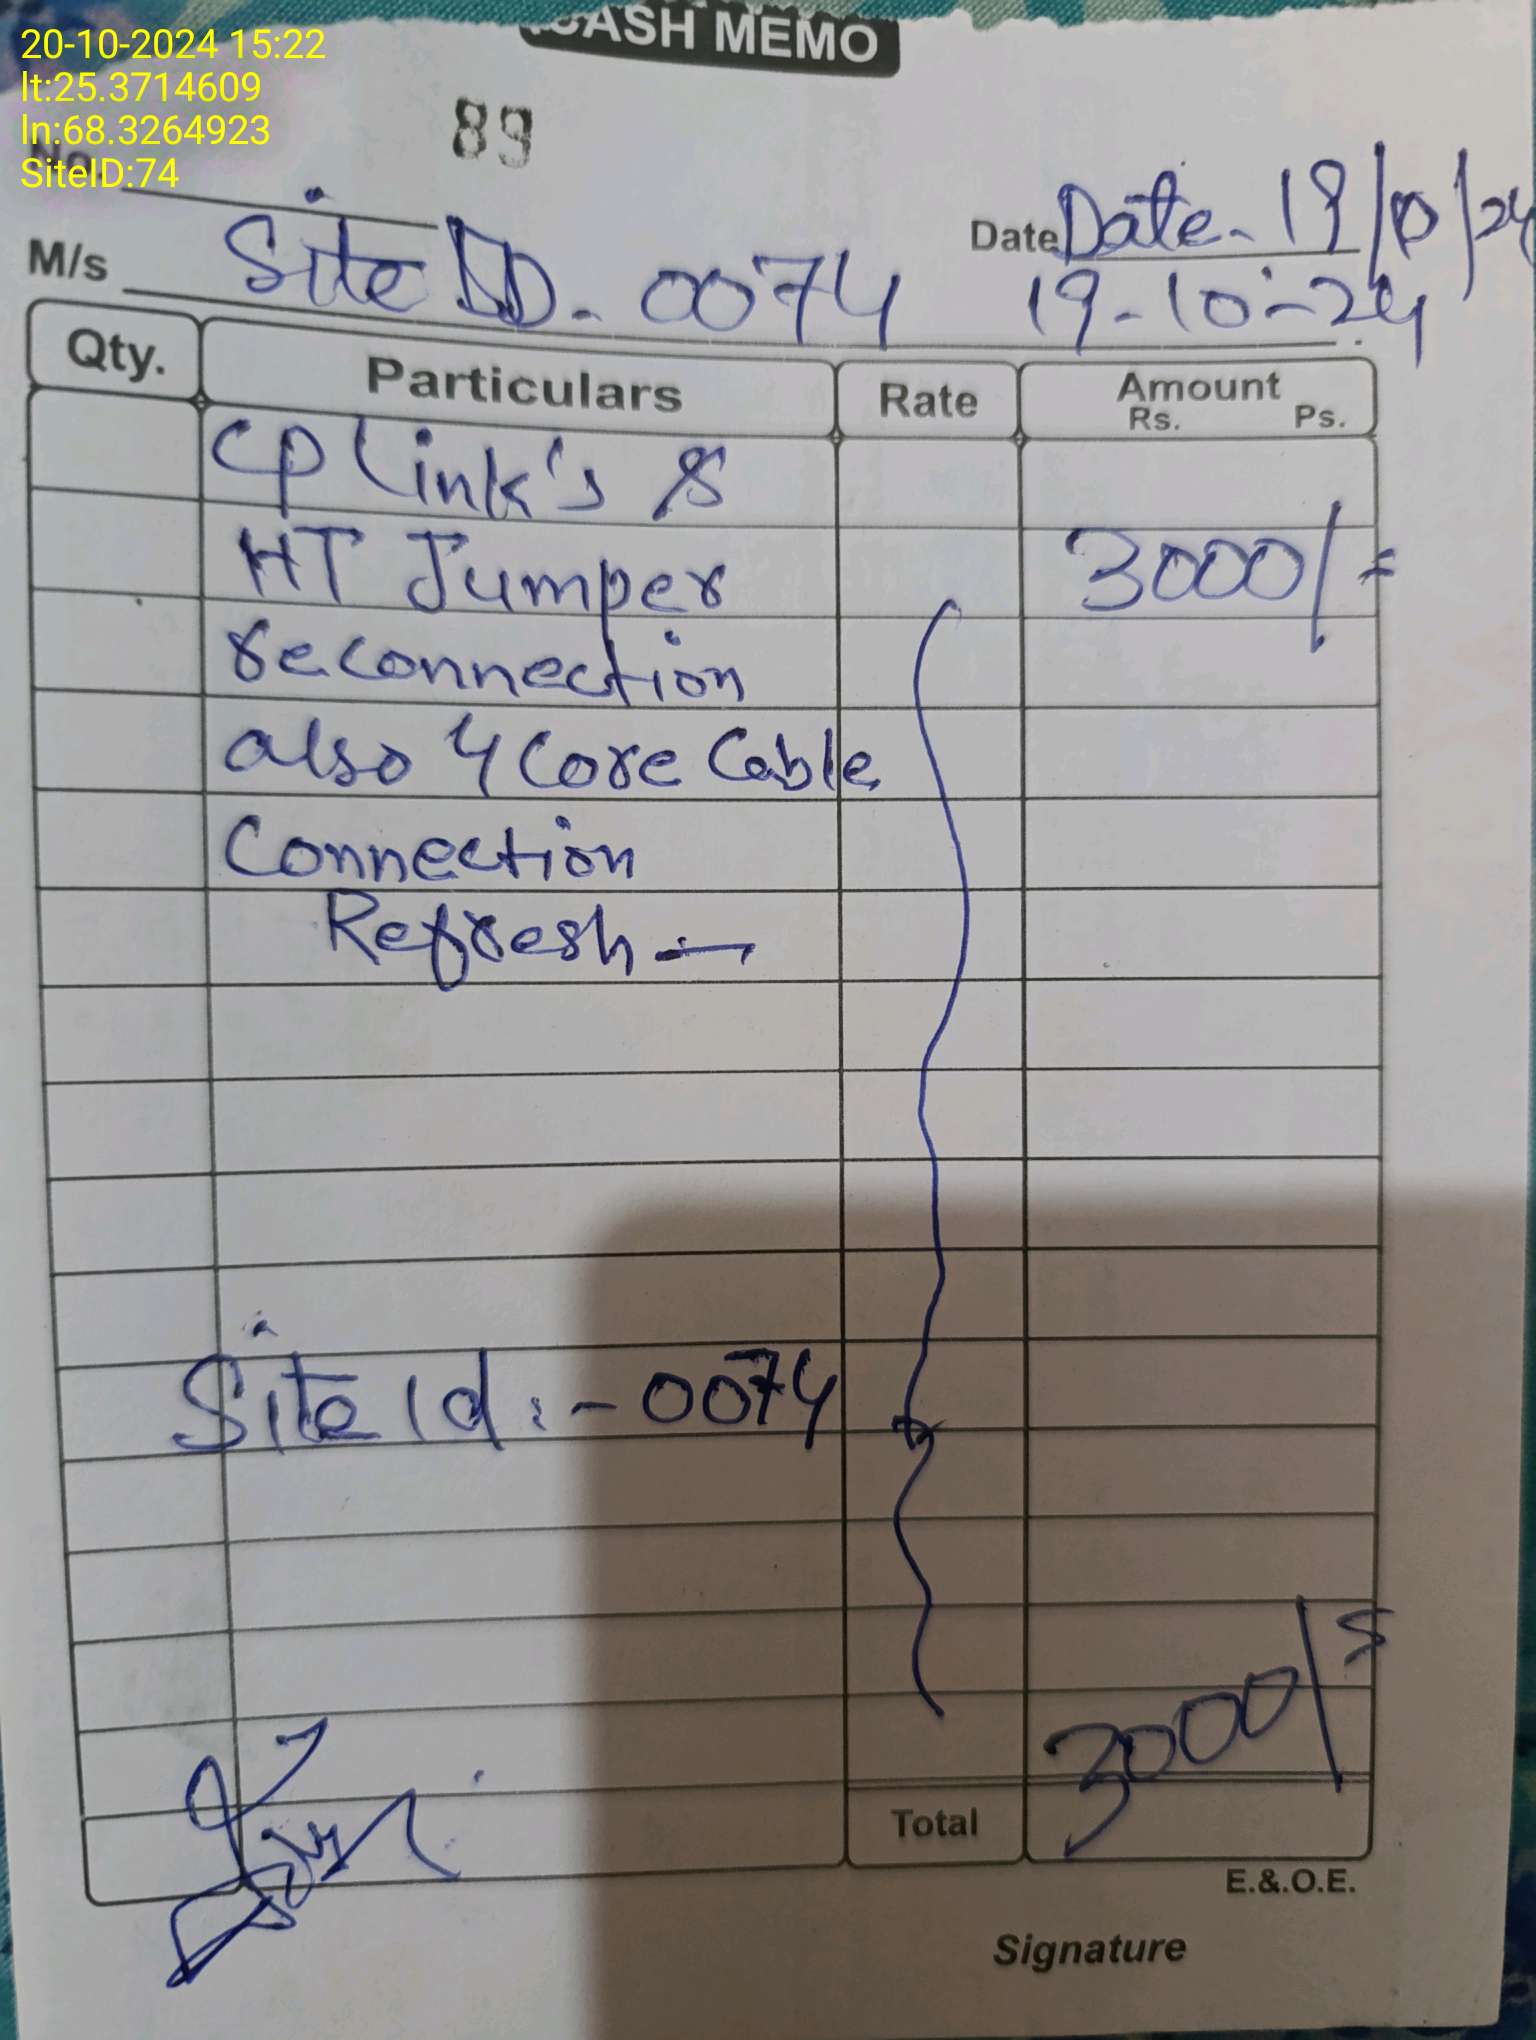 20-10-2024 15:22
lt:25.3714609
ln:68.3264923
SiteID:74
CASH MEMO
No. 89
Date Date - 19/10/24
M/s Site ID - 0074 19-10-24
Qty. Particulars Rate Amount
Rs. Ps.
CP Link's &
HT Jumper 3000/=
reconnection
also 4 Core Cable
Connection
Refresh -
Site Id :- 0074
3000/=
Total
E.&.O.E.
Signature